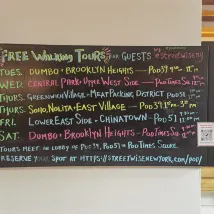 FREE WALKING TOURS FOR GUESTS
TUES. DUMBO & BROOKLYN HEIGHTS — POD39
WED. CENTRAL PARK & UPPER WEST SIDE — POD TIMES SQ
THURS. GREENWICH VILLAGE & MEATPACKING DISTRICT POD39
THURS. SOHO, NOLITA & EAST VILLAGE — POD39
FRI. LOWER EAST SIDE & CHINATOWN — POD51
SAT. DUMBO & BROOKLYN HEIGHTS — POD TIMES SQ
TOURS MEET IN LOBBY OF POD39, POD51 & POD TIMES SQUARE.
RESERVE YOUR SPOT AT HTTPS://STREETWISENEWYORK.COM/POD/